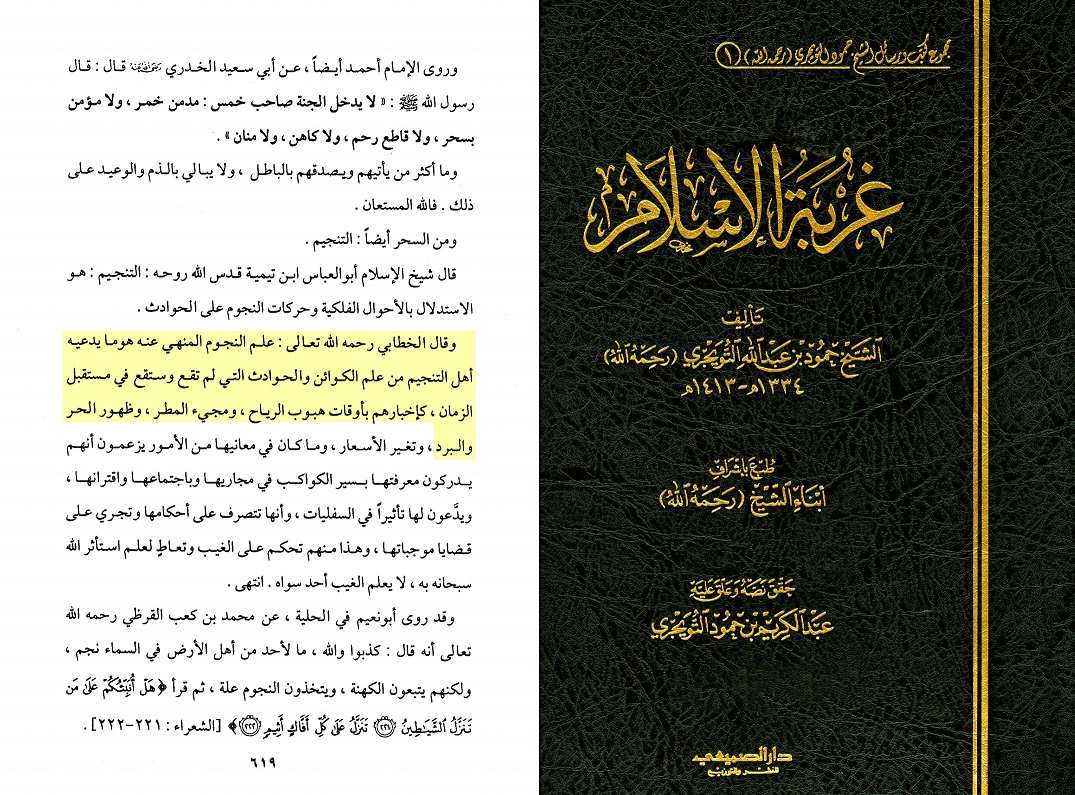 مجموع كتب ورسائل الشيخ حمود التويجري (رحمه الله) ١
غُربَةُ الإسْلَامِ
تَأليفُ
الشَّيْخ حمُود بن عَبْدِ اللهِ التُّوَيجري (رَحِمَهُ اللهُ)
١٣٣٤هـ-١٤١٣هـ
طُبعَ بإشرافِ
أبْنَاءِ الشَّيْخ (رَحِمَهُ اللهُ)
حَقّقَ نَصَّهُ وَعَلّقَ عَليْهِ
عَبْد الكَريم بن حمُود التُّوَيجري
دار الصميعي
للنشر والتوزيع
وروى الإمام أحمد أيضاً ، عن أبي سعيد الخدري رضي الله عنه قال : قال
رسول الله ﷺ : « لا يدخل الجنة صاحب خمس : مدمن خمر ، ولا مؤمن
بسحر ، ولا قاطع رحم ، ولا كاهن ، ولا منان » .
وما أكثر من يأتيهم ويصدقهم بالباطل ، ولا يبالي بالذم والوعيد على
ذلك . فالله المستعان .
ومن السحر أيضاً : التنجيم .
قال شيخ الإسلام أبوالعباس ابن تيمية قدس الله روحه : التنجيم : هو
الاستدلال بالأحوال الفلكية وحركات النجوم على الحوادث .
وقال الخطابي رحمه الله تعالى : علم النجوم المنهي عنه هوما يدعيه
أهل التنجيم من علم الكوائن والحوادث التي لم تقع وستقع في مستقبل
الزمان ، كإخبارهم بأوقات هبوب الرياح ، ومجيء المطر ، وظهور الحر
والبرد ، وتغير الأسعار ، وما كان في معانيها من الأمور يزعمون أنهم
يدركون معرفتها بسير الكواكب في مجاريها وباجتماعها واقترانها ،
ويدَّعون لها تأثيراً في السفليات ، وأنها تتصرف على أحكامها وتجري على
قضايا موجباتها ، وهذا منهم تحكم على الغيب وتعاطٍ لعلم استأثر الله
سبحانه به ، لا يعلم الغيب أحد سواه . انتهى .
وقد روى أبونعيم في الحلية ، عن محمد بن كعب القرظي رحمه الله
تعالى أنه قال : كذبوا والله ، ما لأحد من أهل الأرض في السماء نجم ،
ولكنهم يتبعون الكهنة ، ويتخذون النجوم علة ، ثم قرأ ﴿هَلْ أُنَبِّئُكُمْ عَلَىٰ مَن
تَنَزَّلُ الشَّيَاطِينُ ﴿٢٢١﴾ تَنَزَّلُ عَلَىٰ كُلِّ أَفَّاكٍ أَثِيمٍ ﴿٢٢٢﴾﴾ [الشعراء : ٢٢١-٢٢٢] .
٦١٩